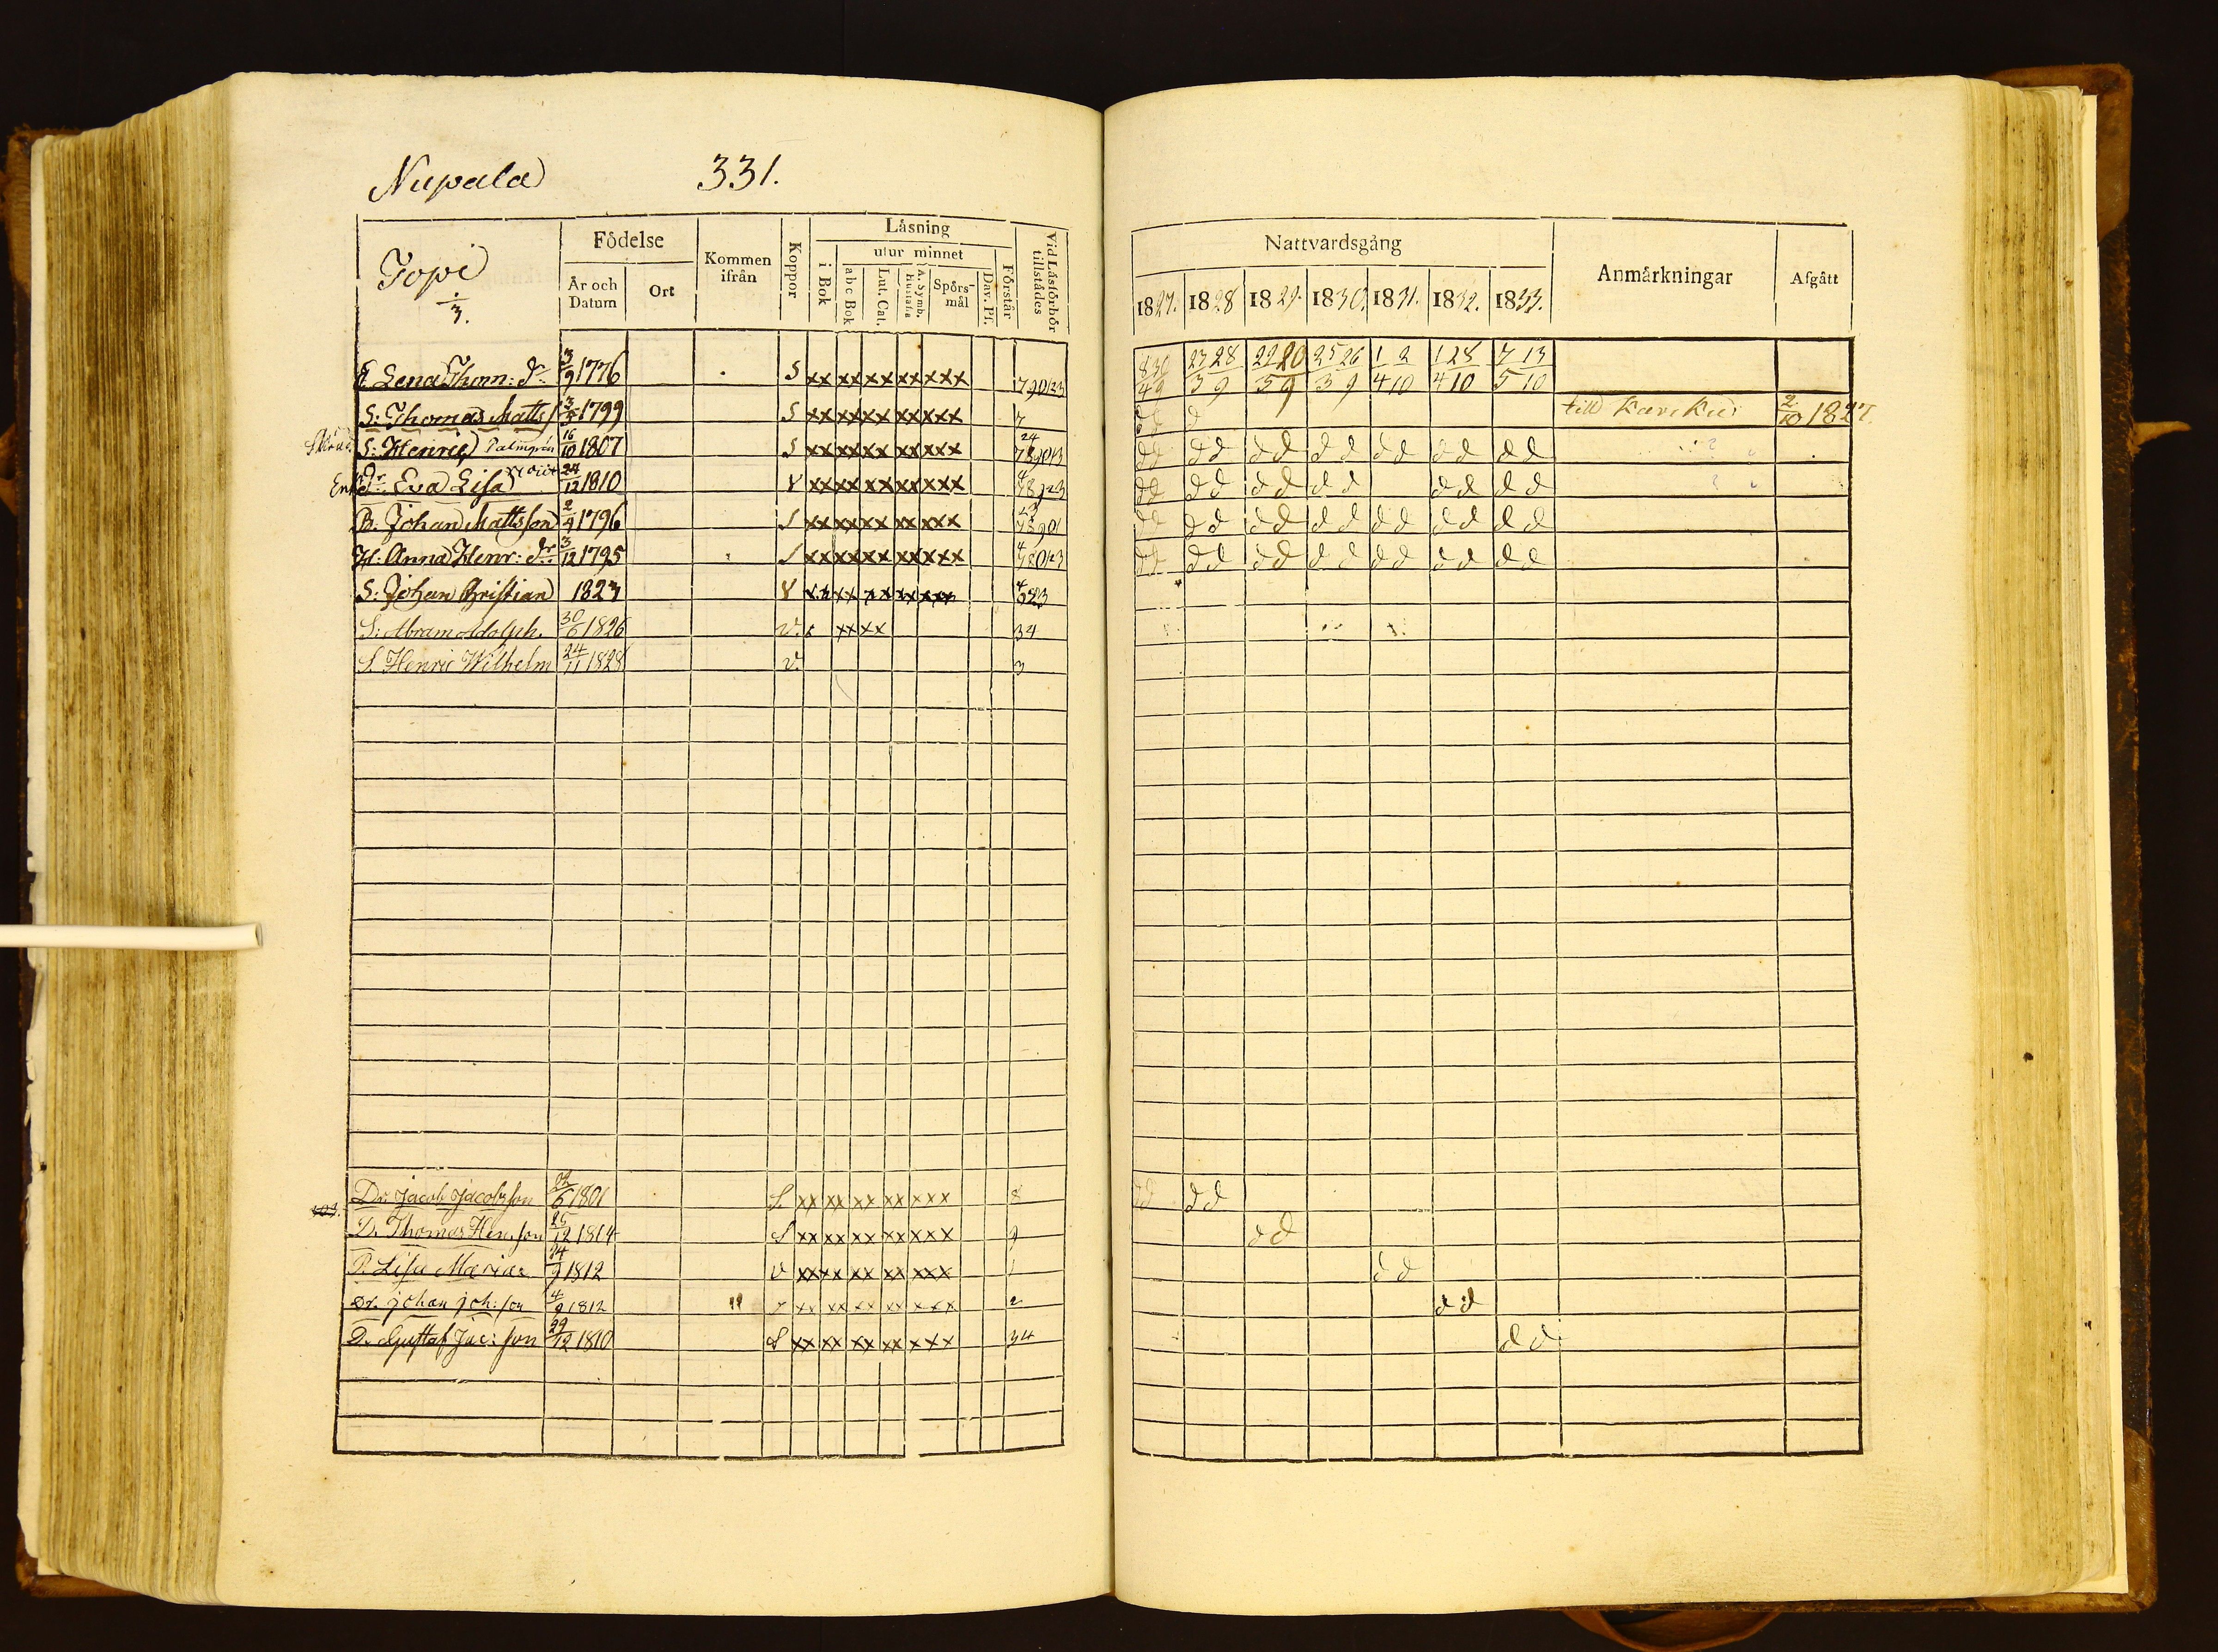 Nupala 331.
Topi
3.
Födelse
År och Datum
Ort
Kommen ifrån
Koppor
Läsning
i Bok
utur minnet
abc Bok
Lut. Cat.
A. Symb. Hustafla
Spörsmål
Dav. Ps.
Förstår
Vid Läsförhör tillstädes
Nattvardsgång
1827. 1828 1829. 1830. 1831. 1832. 1833.
Anmärkningar
Afgått
E Lena Thom: dr 3/9 1776 S xx xx xx xx xxx 8 30/4 9 23 28/3 9 22 20/5 9 25 26/3 9 1 2/4 10 1 28/4 10 7 13/5 10
S: Thomas Matts 1799 S xx xx xx xx xxx 7 till 2/10 1827.
S: Henric Palmgrén 16/10 1807 S xx xx xx xx xxx dd dd dd dd dd dd dd
Enk dr Eva Lisa 24/12 1810 V xx xx xx xx xxx dd dd dd dd dd dd
B: Johan Mattsson 2/4 1796 S xx xx xx xx xxx dd dd dd dd dd dd dd
H: Anna Henr: dr 3/12 1795 S xx xx xx xx xxx dd dd dd dd dd dd dd
S: Johan Christian 1823 V xx xx xx xx xxx
S: Abram Adolph. 30/6 1826 v. x xx xx 34
S. Henric Wilhelm 24/11 1828 v. 3
Dr. Jacob Jacobsson 6 1801 S. xx xx xx xx xxx 8 dd dd
103.
D. Thomas Hen.son 25/12 1814 S xx xx xx xx xxx 9 dd
P. Lisa Maria 24/9 1812 v xx xx xx xx xxx 1 dd
Dr. Johan Joh: son 4/9 1812 v xx xx xx xx xxx 2 dd
D. Gustaf Jac: son 29/12 1810 S xx xx xx xx xxx 34 dd